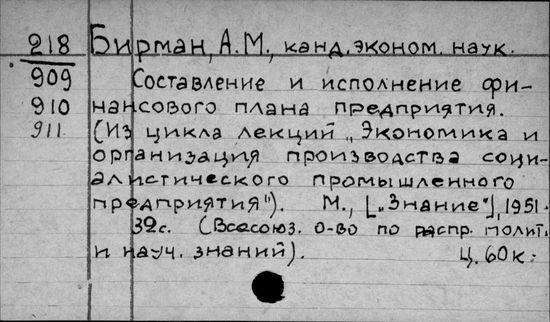 218 Бирман, А.М., канд. эконом. наук.
909 Составление и исполнение фи-
910 нансового плана предприятия.
911 (Из цикла лекций „Экономика и
организация производства соци-
алистического промышленного
предприятия"). М., [„Знание"], 1951.
32с. (Всесоюз. о-во по распр. полит.
и науч. знаний). Ц. 60к.